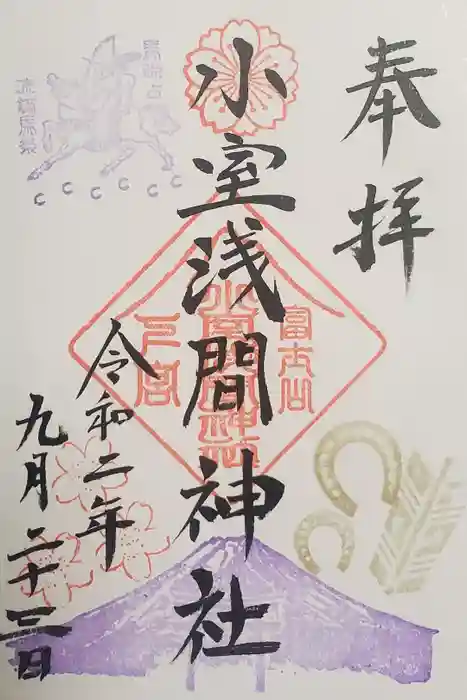 奉拝
小室浅間神社
富士山
小室浅間神社
下宮
令和二年
九月二十三日
流鏑馬祭